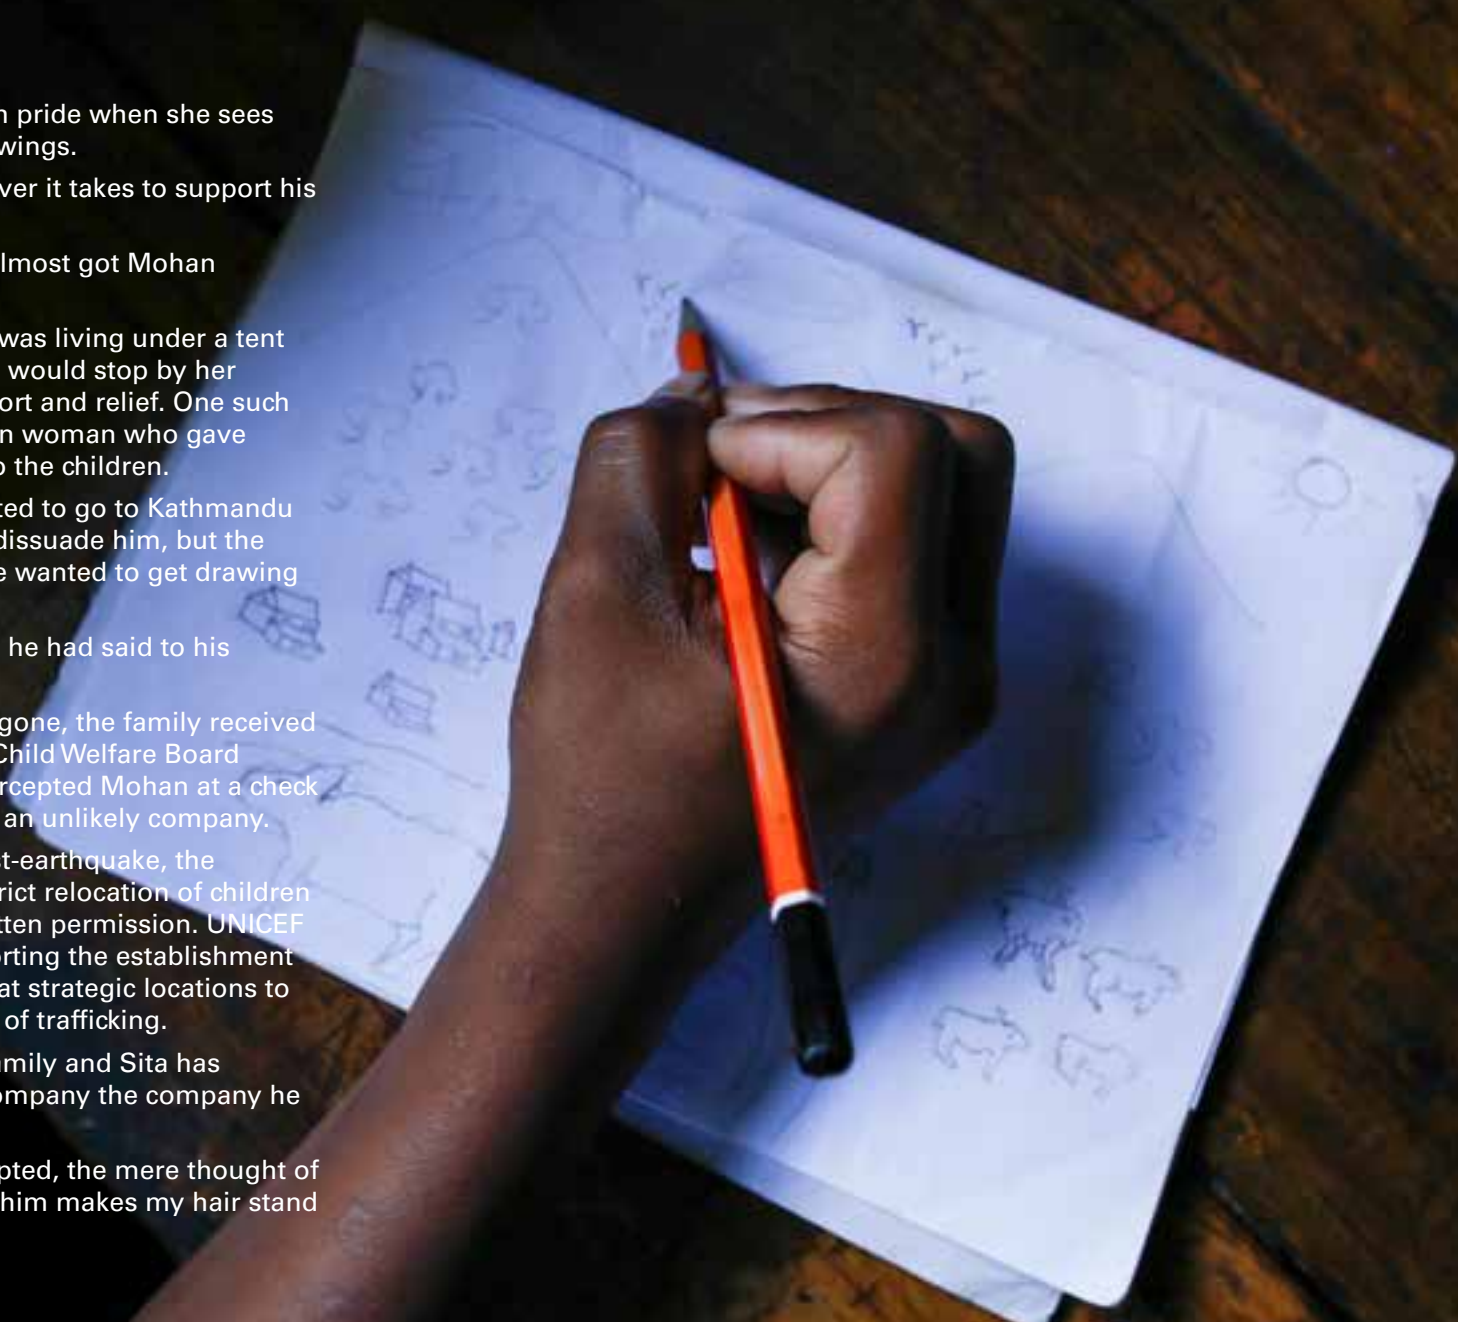 pride when she sees
wings.
ver it takes to support his
lmost got Mohan
was living under a tent
would stop by her
ort and relief. One such
n woman who gave
o the children.
ted to go to Kathmandu
dissuade him, but the
e wanted to get drawing
he had said to his
gone, the family received
Child Welfare Board
rcepted Mohan at a check
an unlikely company.
st-earthquake, the
rict relocation of children
tten permission. UNICEF
rting the establishment
at strategic locations to
of trafficking.
amily and Sita has
ompany the company he
pted, the mere thought of
him makes my hair stand